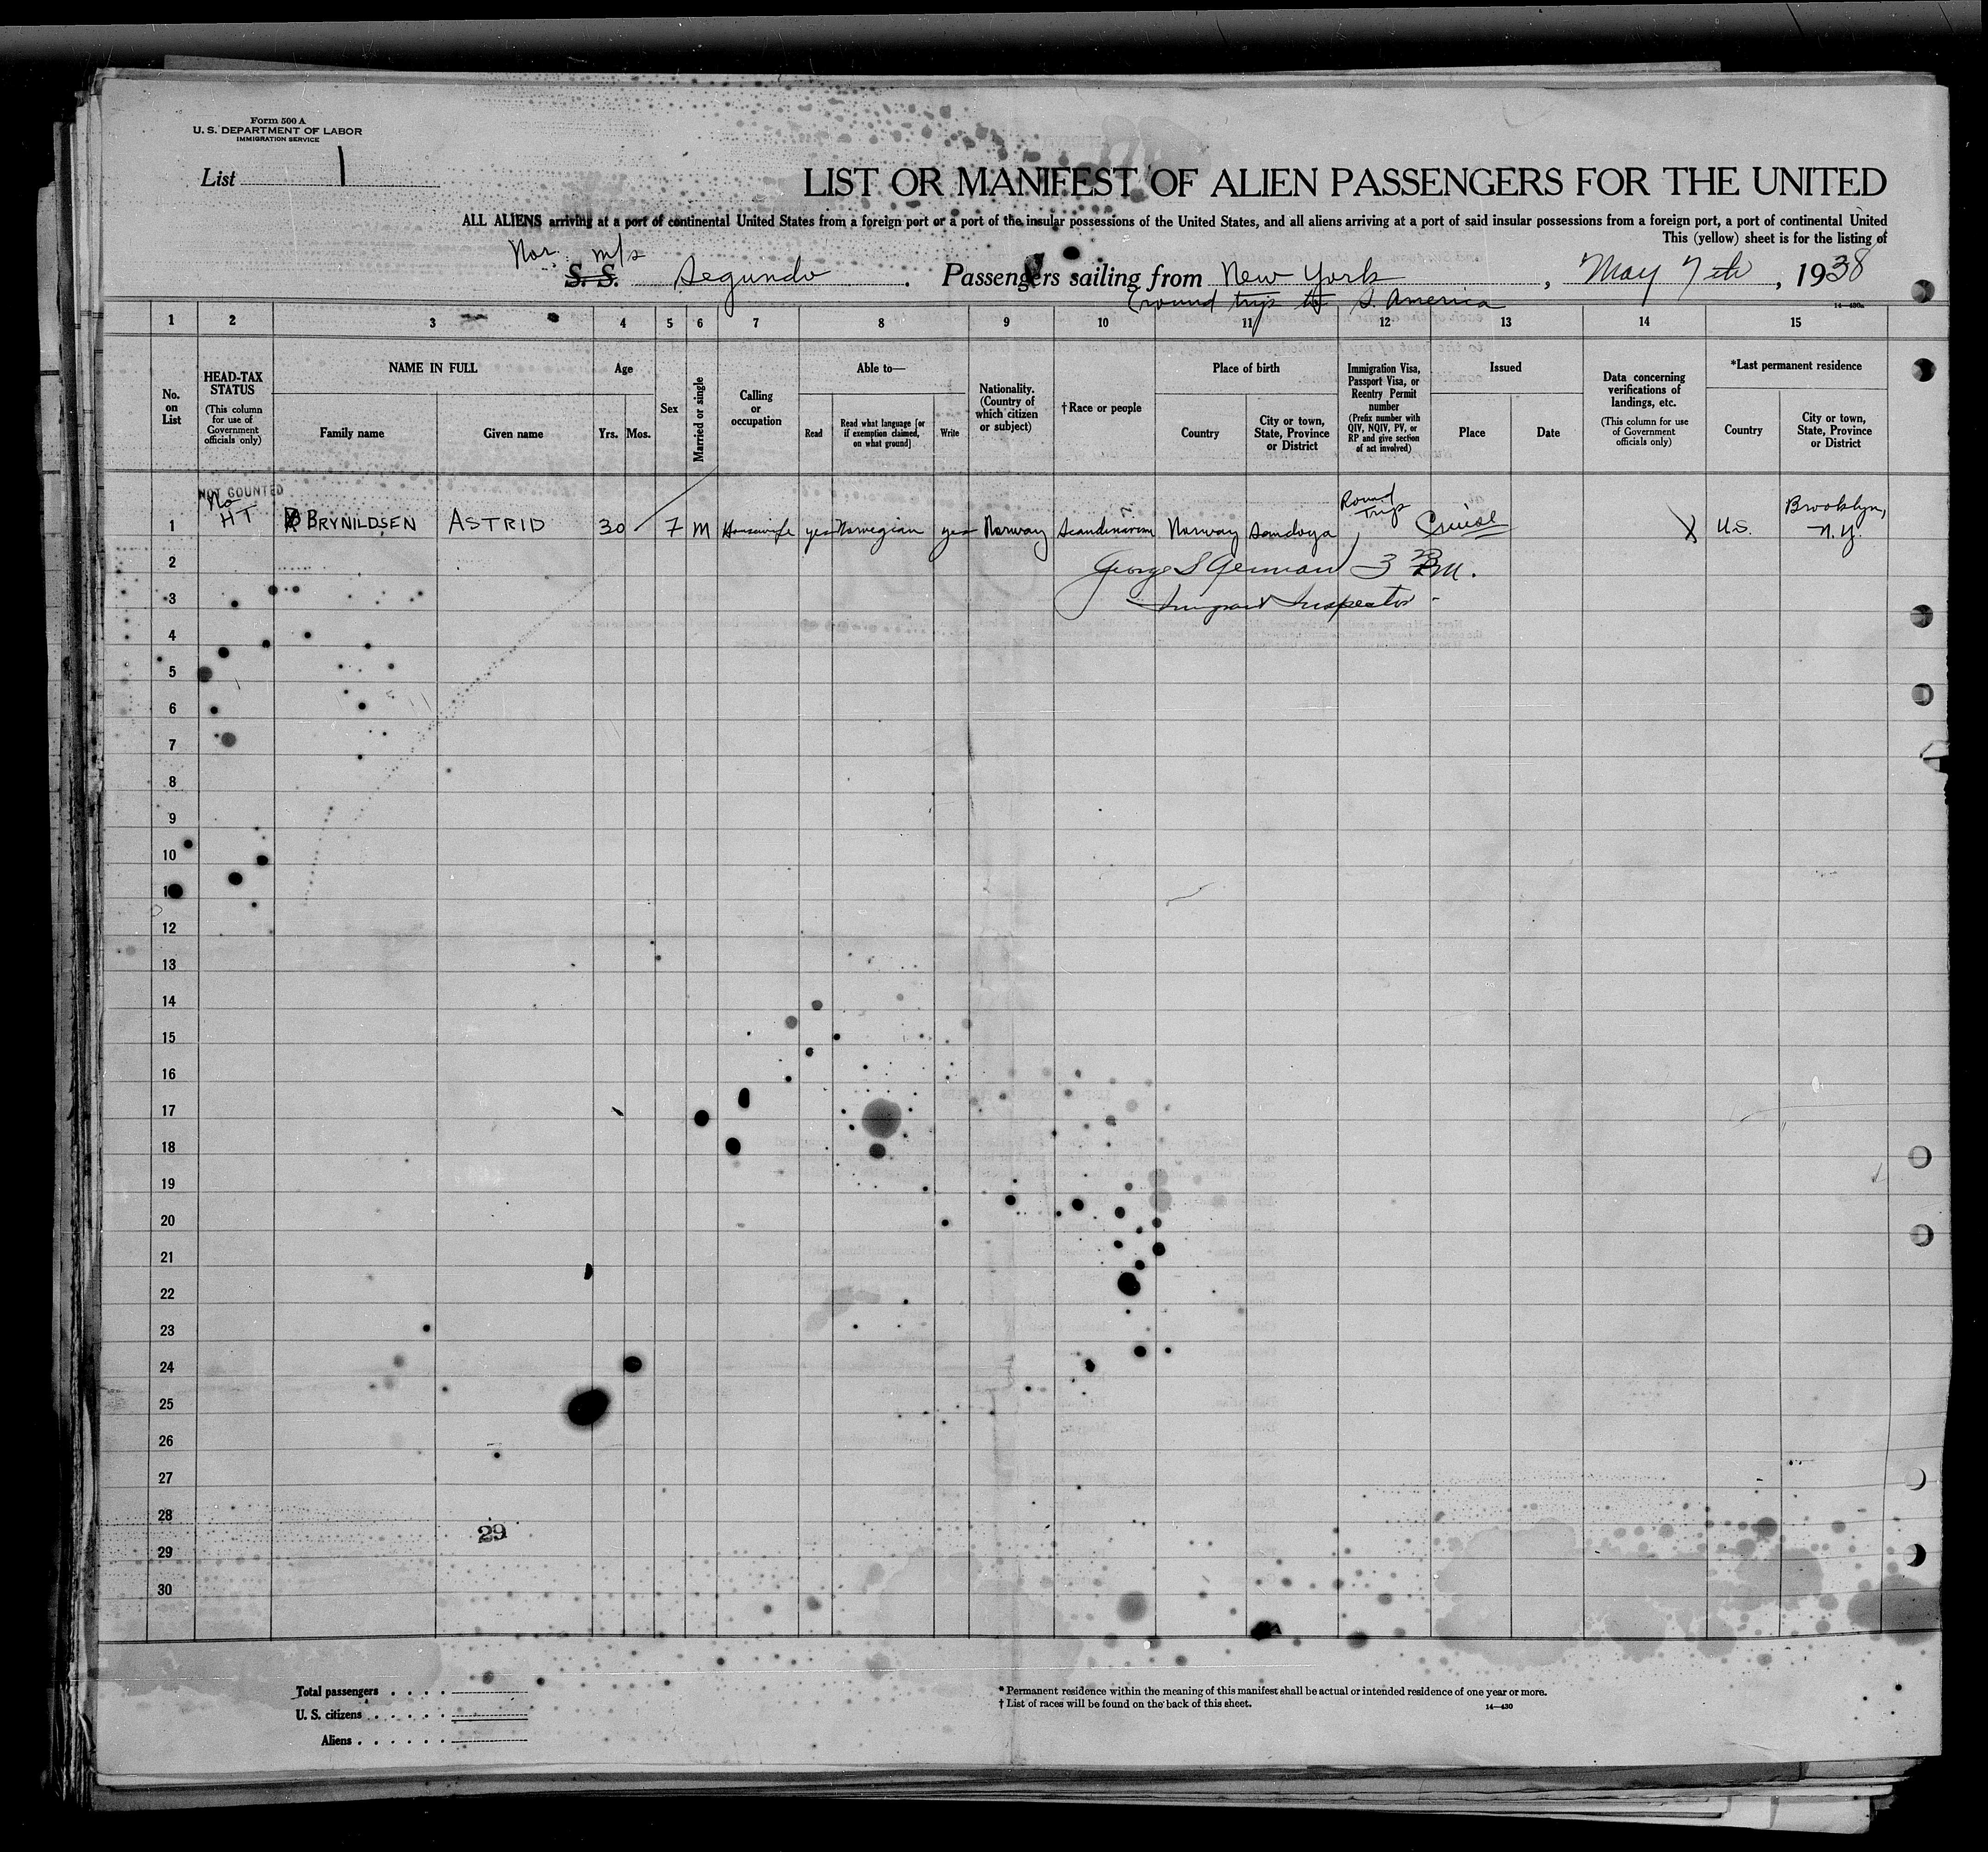 Form 500 A
U. S. DEPARTMENT OF LABOR
IMMIGRATION SERVICE
List 1
LIST OR MANIFEST OF ALIEN PASSENGERS FOR THE UNITED
ALL ALIENS arriving at a port of continental United States from a foreign port or a port of the insular possessions of the United States, and all aliens arriving at a port of said insular possessions from a foreign port, a port of continental United
This (yellow) sheet is for the listing of
Nor. m/s
S. S. Segundo. Passengers sailing from New York, May 7th, 1938
(round trip to S. America
14-430a
1 2 3 4 5 6 7 8 9 10 11 12 13 14 15
No. on List
HEAD-TAX STATUS
(This column for use of Government officials only)
NAME IN FULL
Family name
Given name
Age
Yrs.
Mos.
Sex
Married or single
Calling or occupation
Able to—
Read
Read what language [or if exemption claimed, on what ground]
Write
Nationality. (Country of which citizen or subject)
†Race or people
Place of birth
Country
City or town, State, Province or District
Immigration Visa, Passport Visa, or Reentry Permit number
(Prefix number with QIV, NQIV, PV, or RP and give section of act involved)
Issued
Place
Date
Data concerning verifications of landings, etc.
(This column for use of Government officials only)
*Last permanent residence
Country
City or town, State, Province or District
NOT COUNTED
No
HT
1 BRYNILDSEN ASTRID 30 F M Housewife yes Norwegian yes Norway Scandinavian Norway Sandoya Round Trip Cruise X U.S. Brooklyn, N.Y.
2 George S German
3 Immigrant Inspector
4
5
6
7
8
9
10
11
12
13
14
15
16
17
18
19
20
21
22
23
24
25
26
27
28
29
29
30
Total passengers . . . .
U. S. citizens . . . . . .
Aliens . . . . . .
* Permanent residence within the meaning of this manifest shall be actual or intended residence of one year or more.
† List of races will be found on the back of this sheet.
14—430